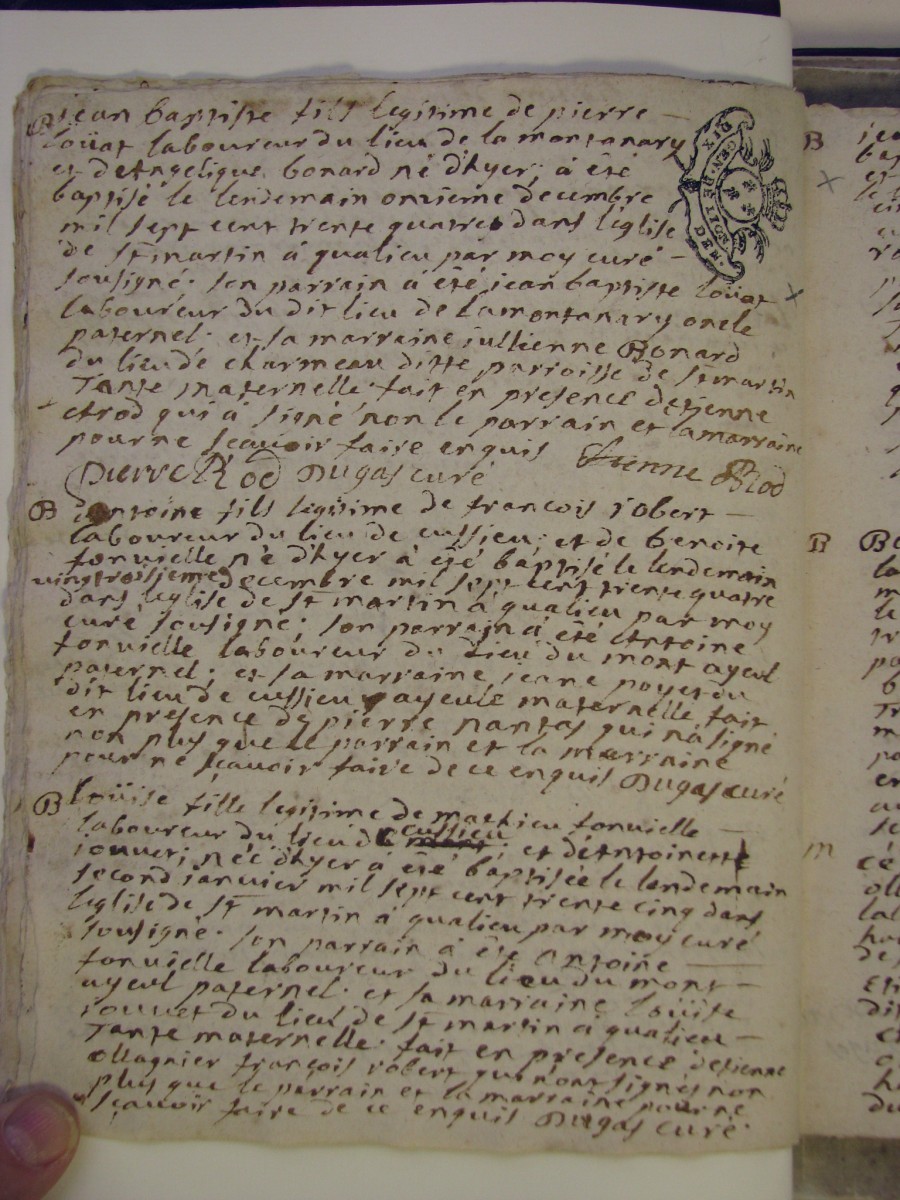 B jean baptiste fils legitime de pierre
loüat laboureur du lieu de la montanary
et d'Angelique bonard né d'hyer; à été
baptisé le lendemain onzieme decembre
mil sept cent trente quatre dans l'eglise
de st martin à qualieu par moy curé
sousigné. son parrain à été jean baptiste loüat
laboureur du dit lieu de la montanary oncle
paternel. et sa marraine jullienne Bonard
du lieu de charmeau ditte parroisse de st martin
Tante maternelle. fait en presence d'etienne
qui à signé non le parrain et la marraine
pour ne sçauoir faire enquis Etienne
pierre Dugas curé
B Antoine fils legitime de francois robert
laboureur du lieu de cussieu; et de benoite
fonuielle né d'hyer à été baptisé le lendemain
vingtroisieme decembre mil sept cent trente quatre
dans l'eglise de st martin à qualieu par moy
curé sousigné; son parrain à été Antoine
fonuielle laboureur du lieu du mont ayeul
paternel; et sa marraine jeane poyet du
dit lieu de cussieu ayeule maternelle, fait
en presence de pierre nantas qui n'a signé
non plus que le parrain et la marraine
pour ne sçauoir faire de ce enquis Dugas curé
B Loüise fille legitime de mathieu fonuielle
laboureur du lieu de cussieu; et d'Antoinette
jouuet; née d'hyer à été baptisée le lendemain
second januier mil sept cent trente cinq dans
l'eglise de st martin à qualieu par moy curé
sousigné. son parrain à été Antoine
fonuielle laboureur du lieu du mont
ayeul paternel. et sa marraine loüise
jouuet du lieu de st martin à qualieu
Tante maternelle. fait en presence d'etienne
ollagnier françois robert qui n'ont signés non
plus que le parrain et la marraine pour ne
sçauoir faire de ce enquis Dugas curé.
B
B
m